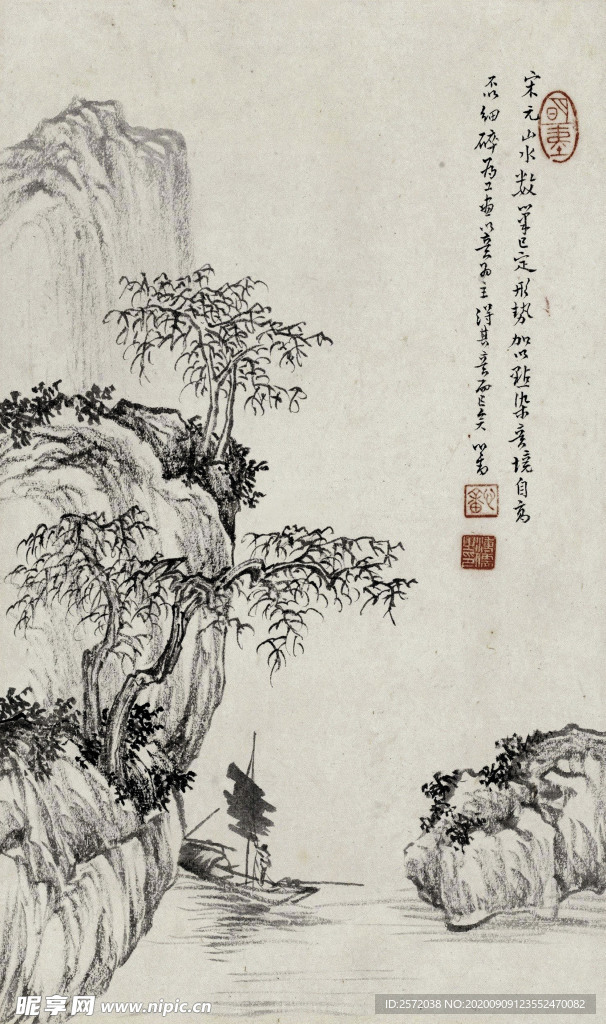 宋元山水数筆已定形勢加以點染意境自高
不以細碎为工畫以意为主得其意而已矣 心畬
心畬
溥儒
昵享网 www.nipic.cn
ID:2572038 NO:20200909123552470082